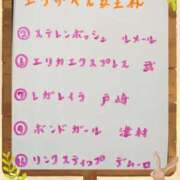 エリザベス女王杯
② ステレンボッシュ ルメール
① エリカエクスプレス 武
⑦ レガレイラ 戸崎
⑨ ボンドガール 津村
⑪ リンクスティップ デムーロ